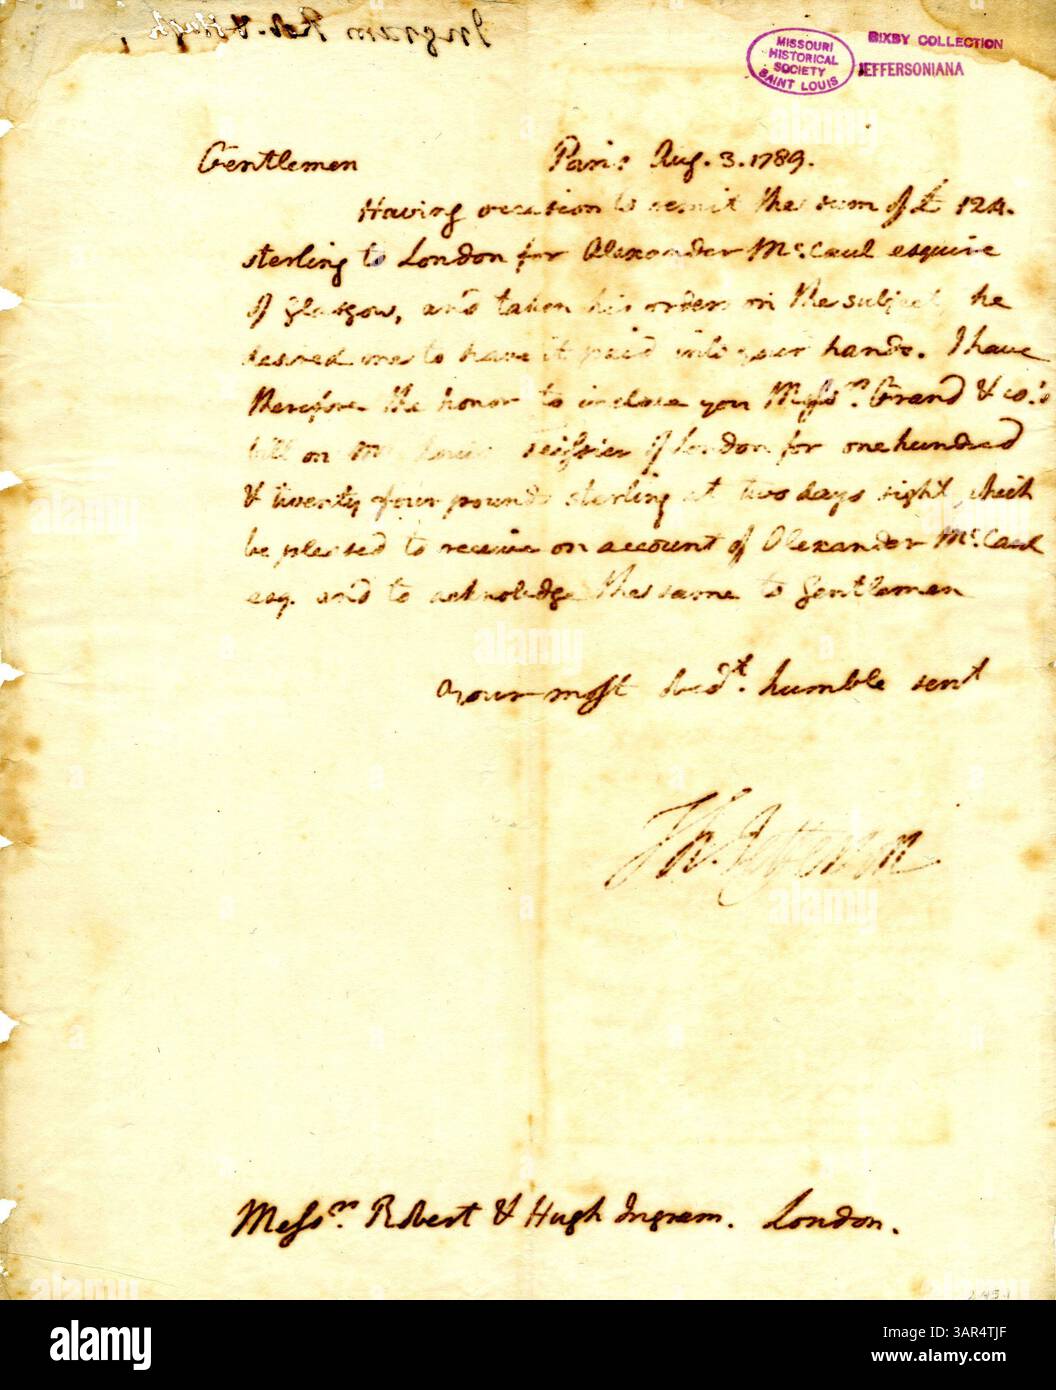 Ingram Rob. & Hugh
MISSOURI
HISTORICAL
SOCIETY
SAINT LOUIS
BIXBY COLLECTION
JEFFERSONIANA
Gentlemen Paris Aug. 3. 1789.
Having occasion to remit the sum of £ 124.
sterling to London for Alexander Mc.Caul esquire
of Glasgow, and taken his orders on the subject, he
desired me to have it paid into your hands. I have
therefore the honor to inclose you Messrs. Grand & co's
bill on Mr Louis Teissier of London for one hundred
& twenty four pounds sterling at two days sight, which
be pleased to receive on account of Alexander Mc.Caul
esq. and to acknolege the same to Gentlemen
your most obedt. humble servt
Th. Jefferson
Messrs. Robert & Hugh Ingram. London.
alamy
a
alamy
Image ID: 3AR4TJF
www.alamy.com